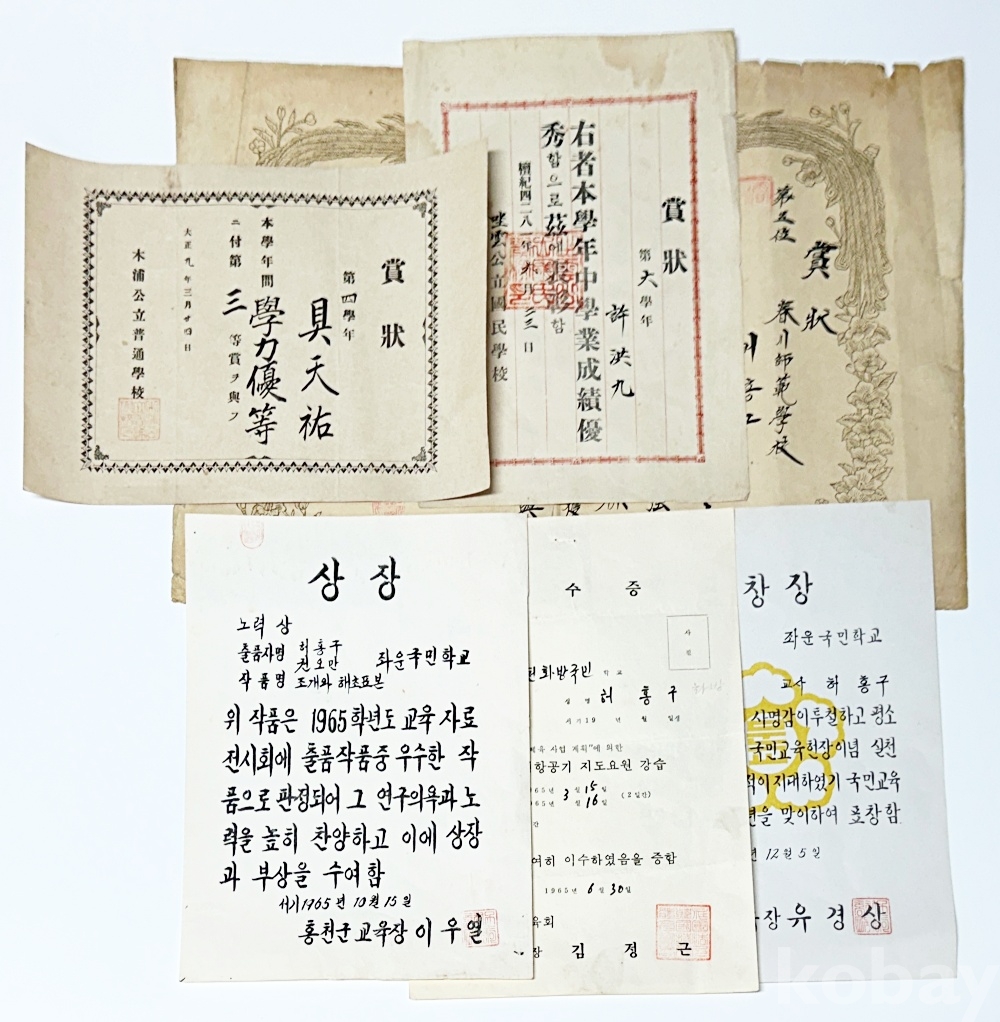 賞狀
第四學年
具天祐
本學年間學力優等
ニ付第三等賞ヲ與フ
大正九年三月廿四日
木浦公立普通學校
賞狀
第六學年
許洪九
右者本學年中學業成績優
秀함으로茲에表彰함
檀紀四二八一年
公立國民學校
賞狀
春川師範學校
第五位
상장
노력상
출품자명 허홍구
권오만
좌운국민학교
작품명 조개와 해초표본
위 작품은 1965학년도 교육 자료
전시회에 출품작품중 우수한 작
품으로 판정되어 그 연구의욕과 노
력을 높히 찬양하고 이에 상장
과 부상을 수여함
서기1965년 10월 15일
홍천군교육장 이우열
수증
사진
화방국민학교
성명 허홍구
서기19 년 월 일생
육 사업 계획"에 의한
항공기 지도요원 강습
65년 3월 15일
65년 월 16일 (2일간)
간
여히 이수하였음을 증함
1965년 6월 30일
육회
장 김정근
창장
좌운국민학교
교사 허홍구
사명감이 투철하고 평소
국민교육헌장이념 실천
적이 지대하였기 국민교육
년을 맞이하여 표창함
년 12월 5일
장 유경상
kobay